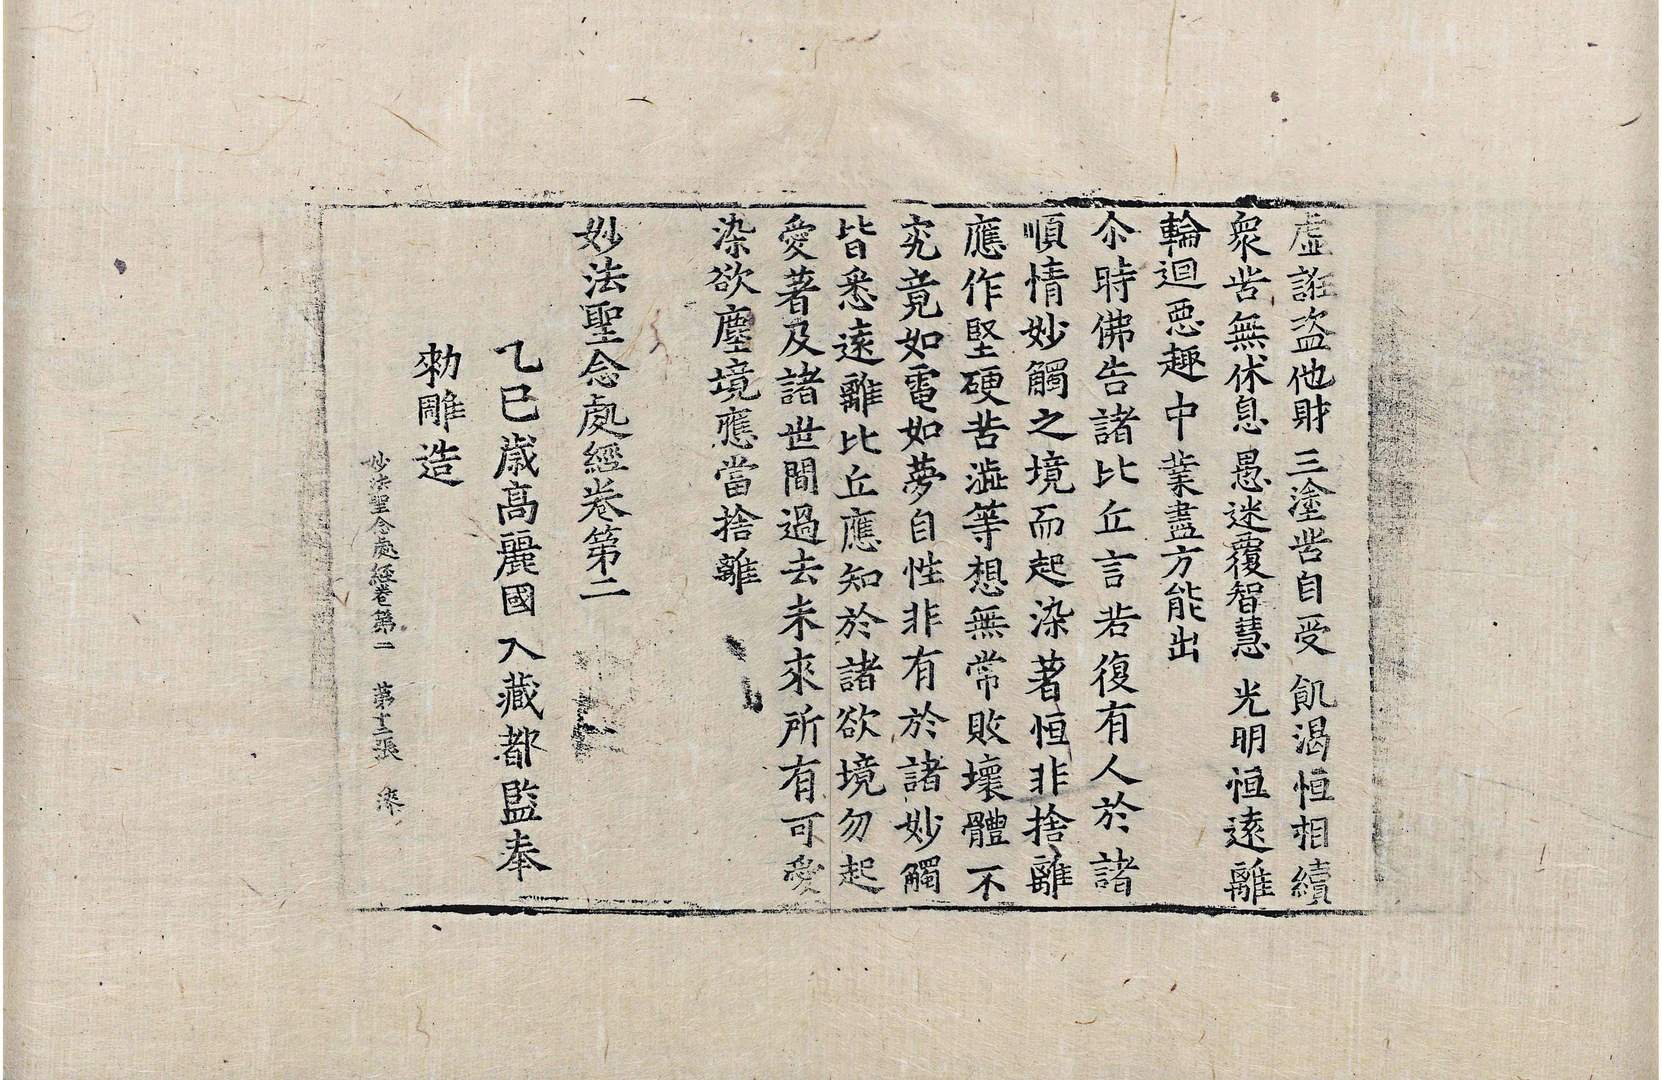 虛誑盜他財 三塗苦自受 飢渴恒相續
衆苦無休息 愚迷覆智慧 光明恒遠離
輪迴惡趣中 業盡方能出
尒時佛告諸比丘言若復有人於諸
順情妙觸之境而起染著恒非捨離
應作堅硬苦澁等想無常敗壞體不
究竟如電如夢自性非有於諸妙觸
皆悉遠離比丘應知於諸欲境勿起
愛著及諸世間過去未來所有可愛
染欲塵境應當捨離
妙法聖念處經卷第二
乙巳歲高麗國大藏都監奉
勑雕造
妙法聖念處經卷第二 第十三張